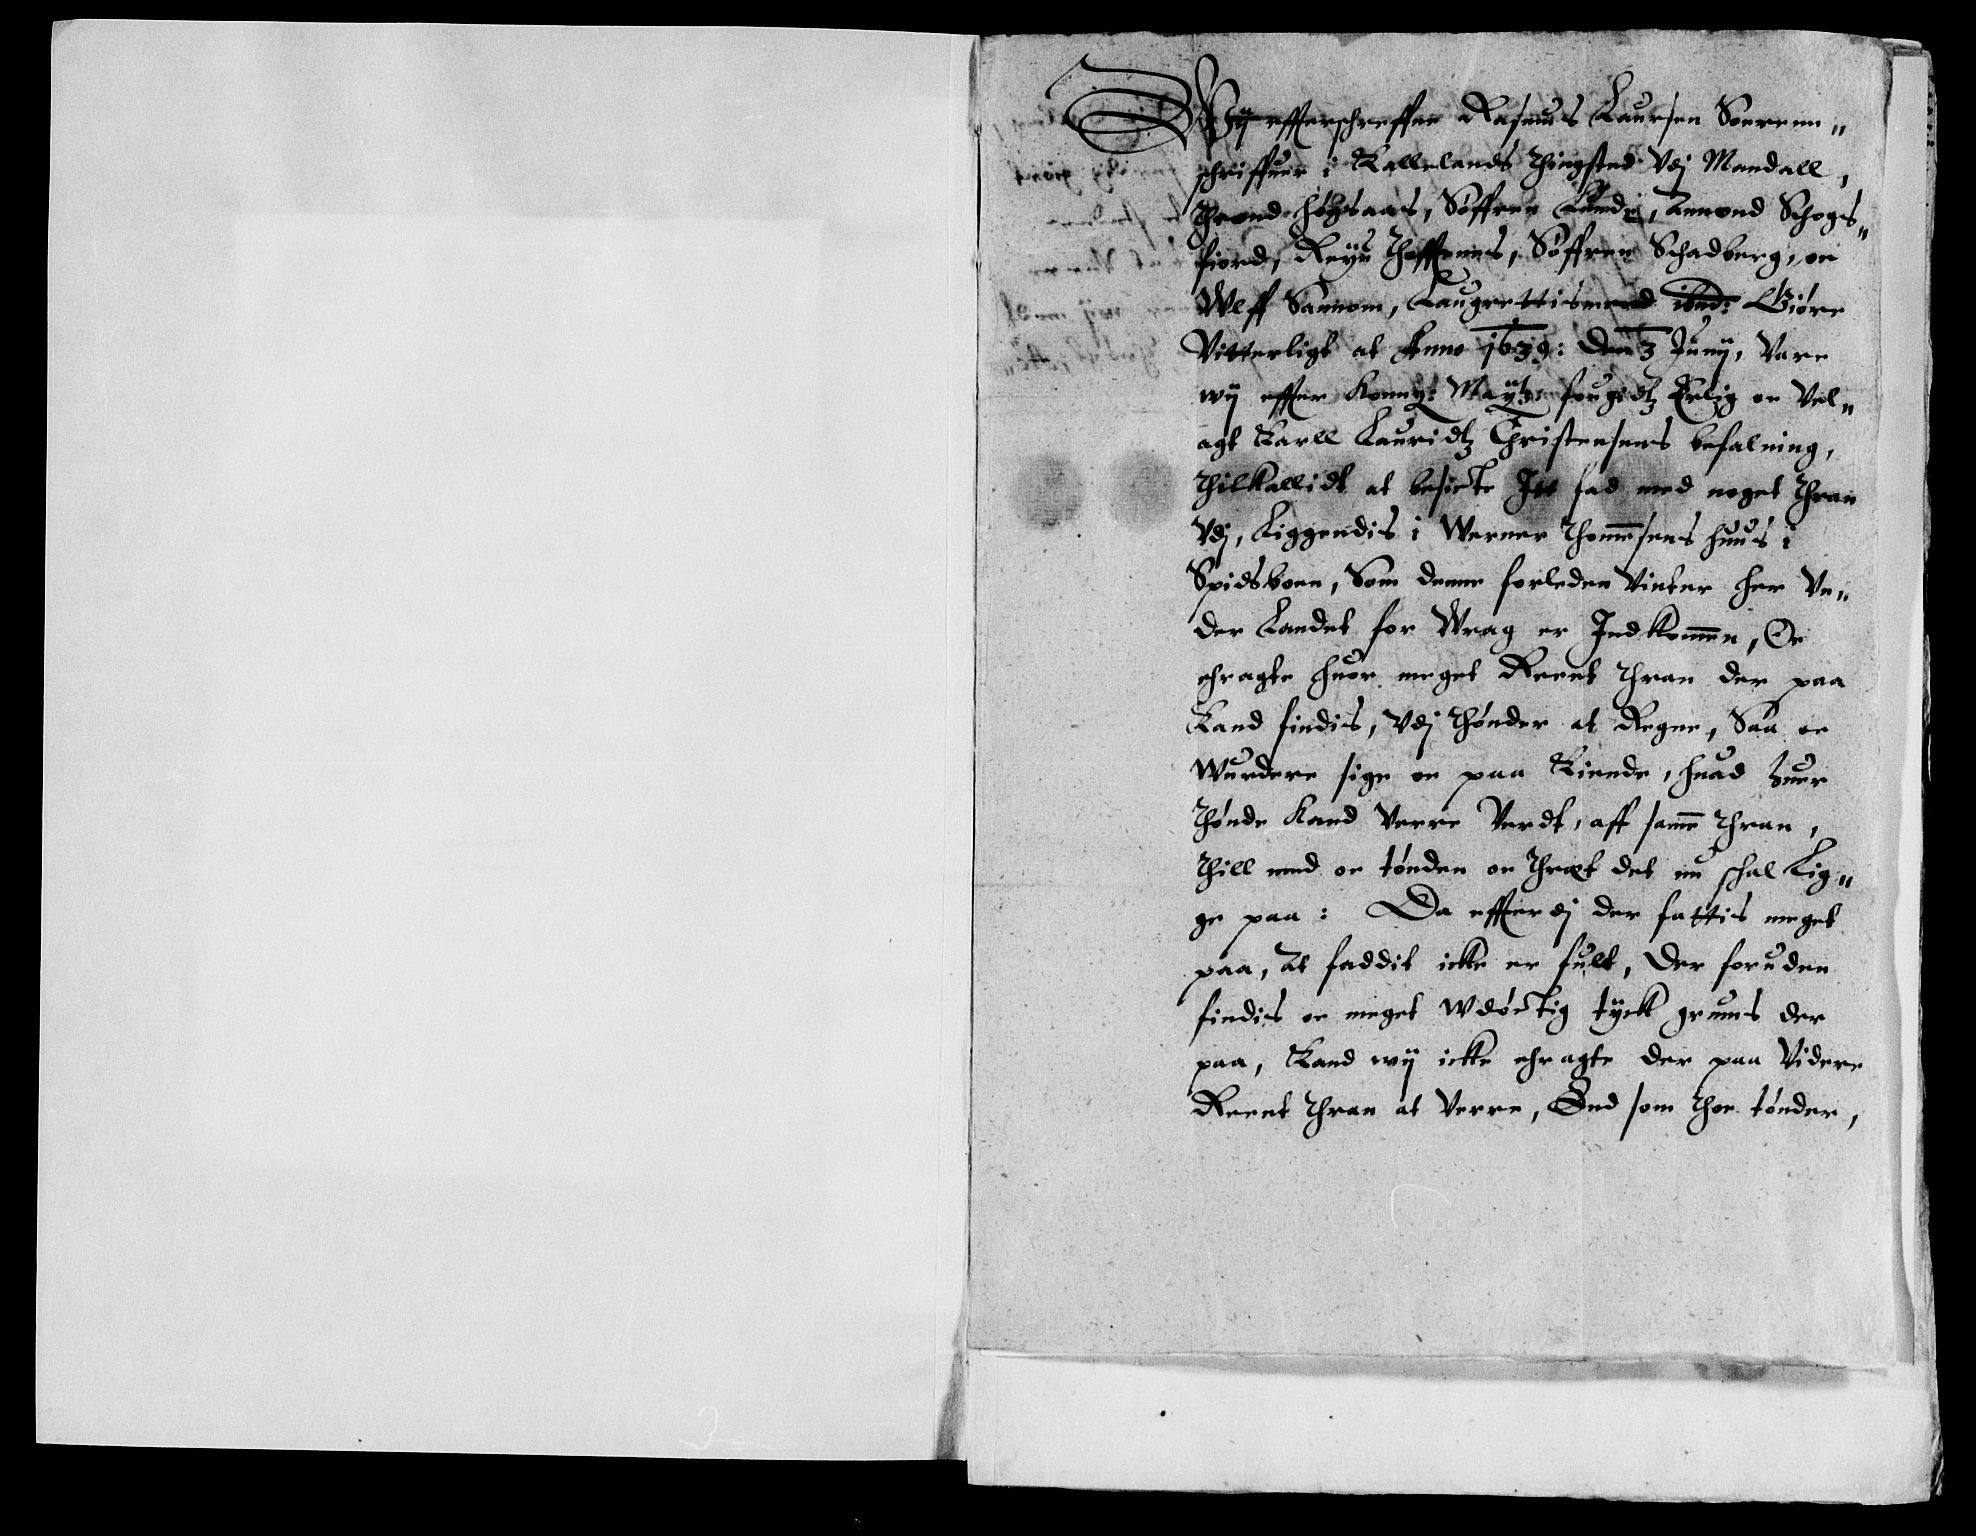 Wij effterschreffne Rasmus Laursen Soerenn"
schriffuer i Kallelands Thingsted Vdj Mandall,
Thrond Høyesaas, Søffren Lunde, Amond Schogs"
fiord, Søffren Schadberg, oc
Wlff Sannom, Laugrettismend ibnd: Giøre
Vitterligt at Anno 1639: den 3 Junij, Vare
wij effter Konng: Maytz: fougidtz Erlig oc Vel"
agt Karll Lauridtz Christensens befalning,
Thilkallidt at besicte Itt fad med noget Thran
Vdj, Liggendis i Werner Thommesens huus i
Spidsboen, Som denne forleden Vinter her Vn"
der Landet for Wrag er Indkommen, Oc
ehragte huor meget Reent Thran der paa
Kand findis, Vdj Thønder at Regne, Saa oc
Wurdere sige oc paa Kiende, huad huer
Thønde Kand Verre Verdt, aff samme Thran,
Thill med oc tønden oc Thræt det nu schal Lig"
ge paa: Da effterdj der fattis meget
paa, At faddit icke er fult, Der foruden
findis oc meget wdøctig tyck grums der
paa, Kand wij icke ehragte der paa Videre
Reent Thran at Verre, End som Thoe tønder,